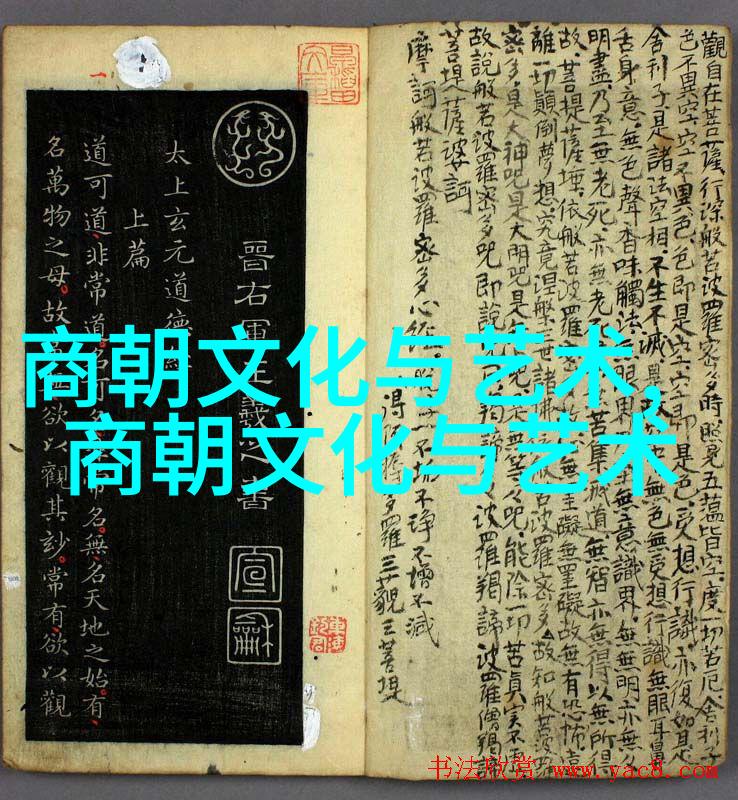 商朝文化与艺术,
商朝文化与艺术
觀自在菩薩行深般若波羅密多時照見五蘊皆空度一切苦厄舍利子
色不異空空不異色色即是空空即是色受想行識亦復如是
舍利子是諸法空相不生不滅是故空中無色無受想行識無眼耳鼻
舌身意無色聲香味觸法無眼界乃至無意識界無無明亦無
明盡乃至無老死亦無老苦集滅道無智亦無得以無所得
故菩提薩埵依般若波羅密無罣礙無罣礙故無有恐怖遠
離一切顛倒夢想究竟涅槃三世諸佛般若波羅密多故知般若波羅
密多是大神咒是大明咒是無等々咒能除一切苦真実不虛
故說般若波羅密多咒即說咒曰揭諦波羅揭諦波羅僧揭諦
菩提薩婆訶
摩訶般若波羅密多心經
不垢不淨不增不減
得阿耨多羅三藐三菩提
晉右軍王羲之書
宣和
太上玄元道德經
上篇
道可道非常道名可名常名無名天地之始有
名萬物之母故欲以觀其妙常有欲以觀
书法欣赏 www.yac8.com